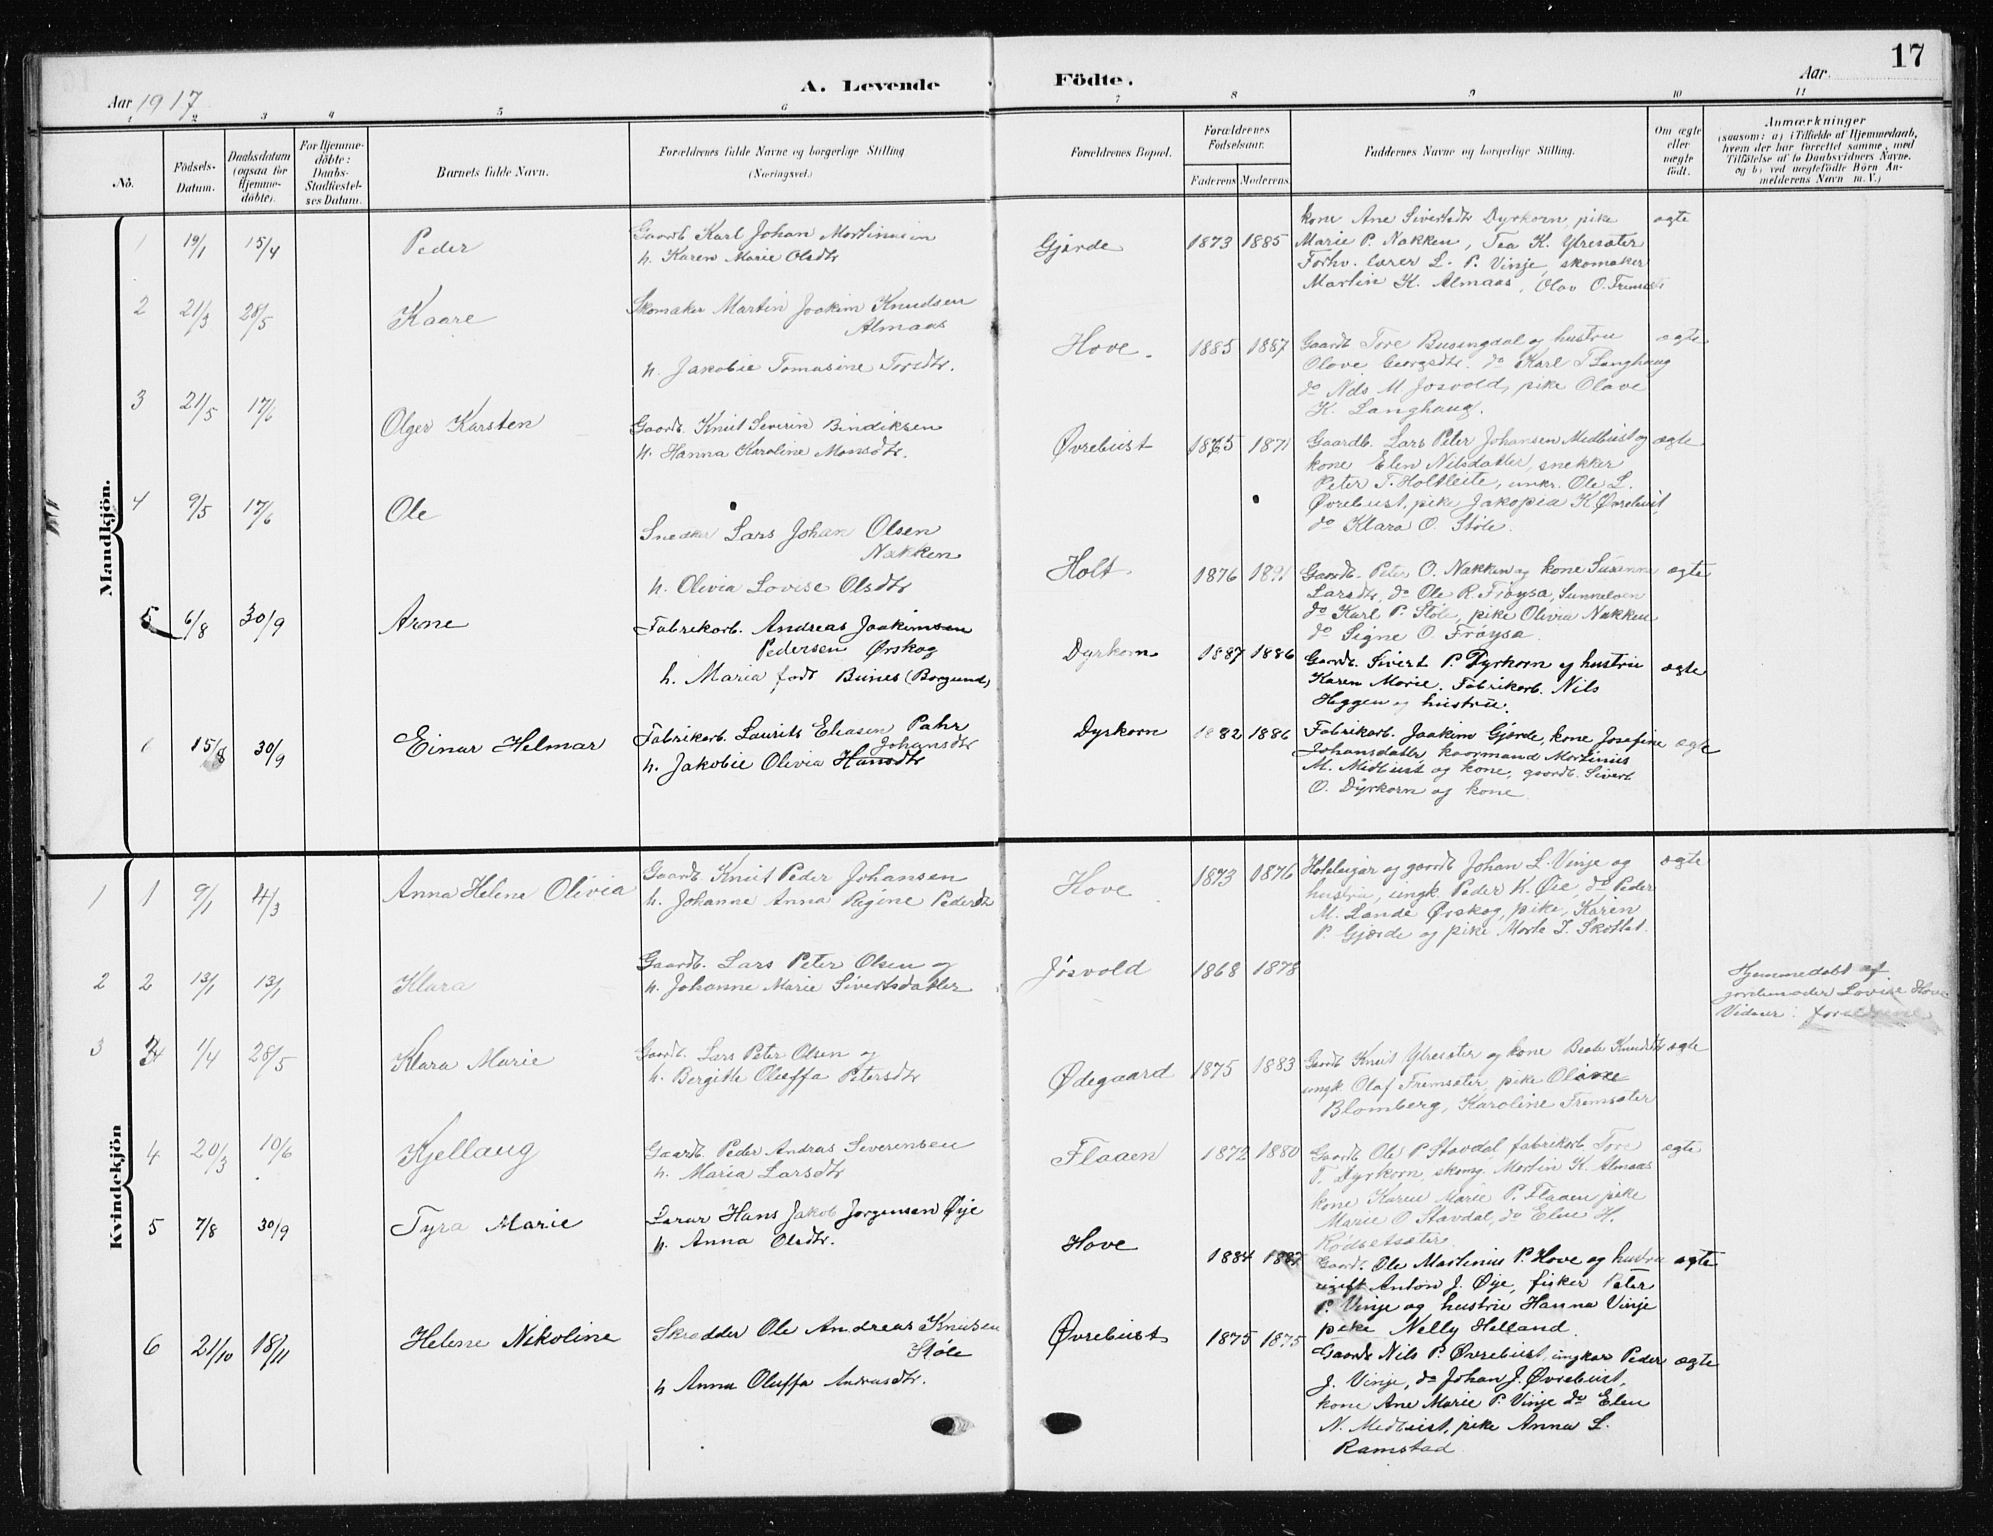 17
A. Levende Födte.
Aar 1917
Aar
1 2 3 4 5 6 7 8 9 10 11
No.
Födsels-Datum.
Daabsdatum (ogsaa for Hjemme-döbte).
For Hjemme-döbte: Daabs-Stadfæstel-ses Datum.
Barnets fulde Navn.
Forældrenes fulde Navne og borgerlige Stilling
(Næringsvei.)
Forældrenes Bopæl.
Forældrenes Födselsaar.
Faderens. Moderens.
Faddernes Navne og borgerlige Stilling.
Om ægte eller uægte født.
Anmærkninger
(saasom: a) i Tilfælde af Hjemmedaab, hvem der har forrettet samme, med Tilföielse af to Daabsvidners Navne. og b) ved uægtefödte Börn An-melderens Navn m. V.)
Mandkjön.
1 19/1 15/4 Peder
Gaardb. Karl Johan Martinusen
h. Karen Marie Olsdtr
Gjerde 1873 1885
kone Ane Sivertsdtr Dyrkorn, pike
Marie P. Nakken, Tea K. Ytresæter
Forhv. lærer L. P. Vinje, skomaker
Martin K. Almaas, Olav O.
ægte
2 21/3 28/5 Kaare
Skomaker Martin Joakim Knudsen
Almaas
h. Jakobie Tomasine Toredtr.
Hove. 1885 1887
Gaardb Tore Busengdal og hustru
Olave Georgsdtr. do Karl T Langhaug
do Nils M Jøsvold, pike Olave
K. Langhaug.
ægte
3 21/5 17/6 Olger Karsten
Gaardb. Knut Severin Bindiksen
h. Hanna Karoline Monsdtr.
Øvrebust 1875 1871
Gaardb. Lars Peter Johansen Midbust og
kone Elen Nilsdatter, snekker
Peter T. Holtleite, unkr. Ole L.
Øvrebust, pike Jakopia K. Øvrebust,
do Klara O Støle.
ægte
4 9/5 17/6 Ole
Snedker Lars Johan Olsen
Nakken
h. Olivia Lovise Olsdtr
Holt. 1876 1891
Gaardb. Peter O. Nakken og kone Susanne
Larsdtr, do Ole R. Frøysa, Sunneloen
do Karl P. Støle, pike Olivia Nakken
do Signe O. Frøysa.
ægte
5 6/8 30/9 Arne
Fabrikarb. Andreas Joakimsen
Pedersen Ørskog
h. Maria født Bunes (Borgund)
Dyrkorn 1887 1886
Gaardb. Sivert P. Dyrkorn og hustru
Karen Marie. Fabrikarb. Nils
Heggen og hustru.
ægte
15/8 30/9 Einar Helmar
Fabrikarb. Laurits Eliasen Pahr
Johansdtr
h. Jakobie Olivia Hansdtr
Dyrkorn 1882 1886
Fabrikarb. Joakim Gjerde, kone Josefine
Johansdatter, kaarmand Martinus
M. Midbust og kone, gaardb. Sivert
O. Dyrkorn og kone
ægte
Kvindekjön
1 1 9/1 4/3 Anna Helene Olivia
Gaardb Knut Peder Johansen
h. Johanne Anna Regine Pedersdtr
Hove 1873 1876
Hoteleigar og gaardb Johan L. Vinje og
hustru, ungk. Peder K. Øie, do Peder
M. Lande Ørskog, pike, Karen
P. Gjerde og pike
ægte
2 2 13/1 13/1 Klara
Gaardb. Lars Peter Olsen og
h. Johanne Marie Sivertsdatter
Jøsvold 1868 1878
Hjemmedøbt af
jordemoder Lovise Hove
Vidner: forældrene
3 1/4 28/5 Klara Marie
Gaardb. Lars Peter Olsen og
h. Bergitte Oluffa Petersdtr
Ødegaard 1875 1883
Gaardb Knut Ytresæter og kone Beate Knudsdtr
ungk Olaf Fremsæter, pike Oline
Blomberg, Karoline Fremsæter
ægte
4 20/3 10/6 Kjellaug
Gaardb. Peder Andras Severensen
h. Maria Larsdtr
Flaaen 1872 1880
Gaardb Ole P Stavdal, fabrikarb Tore
T. Dyrkorn, skomg. Martin K. Almaas
kone Karen Marie P. Flaaen pike
Marie O Stavdal, do Elen H.
Rødsetsæter.
ægte
5 7/8 30/9 Tyra Marie
Lærar Hans Jakob Jørgensen Øye
h. Anna Olsdtr.
Hove 1884 1887
Gaardb. Ole Martinus P. Hove og hustru
ugift Anton J. Øye, fisker Peter
P. Vinje og hustru Hanna Vinje
pike Nelly Helland.
ægte
6 21/10 18/11 Helene Nikoline
Skrædder Ole Andreas Knutsen
Støle
h Anna Oluffa Andrasdtr.
Øvrebust 1875 1875
Gaardb Nils P. Øvrebust, ungkar Peder
J. Vinje, do Johan J. Øvrebust,
kone Ane Marie P. Vinje do Elen
N. Midbust, pike Anna L.
Ramstad
ægte